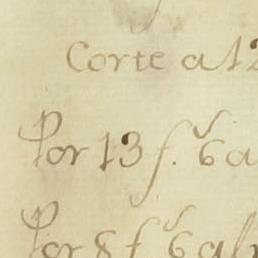 Corte a 12
Por 13 f. 6 a
Por 8 f 6 al